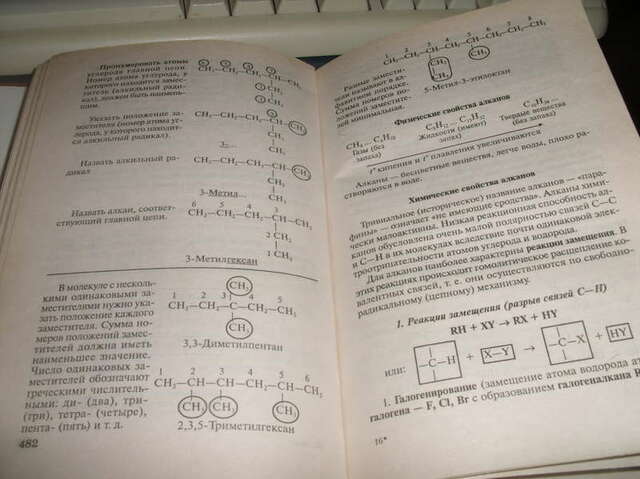 Пронумеровать атомы
углерода главной цепи.
Номер атома углерода, у
которого находится заме-
ститель (алкильный ради-
кал), должен быть наимень-
шим.
CH₃—CH₂—CH₂—CH—CH₃
CH₂
CH₃
Указать положение за-
местителя (номер атома уг-
лерода, у которого находит-
ся алкильный радикал).
CH₃—CH₂—CH₂—CH—CH₃
CH₂
CH₃
3-...
Назвать алкильный ра-
дикал
CH₃—CH₂—CH₂—CH—CH₃
CH₂
CH₃
3-Метил...
Назвать алкан, соответ-
ствующий главной цепи.
6 5 4 3
CH₃—CH₂—CH₂—CH—CH₃
2 CH₂
1 CH₃
3-Метилгексан
В молекуле с несколь-
кими одинаковыми за-
местителями нужно ука-
зать положение каждого
заместителя. Сумма но-
меров положений замес-
тителей должна иметь
наименьшее значение.
Число одинаковых за-
местителей обозначают
греческими числитель-
ными: ди- (два), три-
(три), тетра- (четыре),
пента- (пять) и т. д.
CH₃
1 2 3 4 5
CH₃—CH₂—C—CH₂—CH₃
CH₃
3,3-Диметилпентан
1 2 3 4 5 6
CH₃—CH—CH—CH₂—CH—CH₃
CH₃ CH₃ CH₃
2,3,5-Триметилгексан
482
Разные замести-
тели называют в ал-
фавитном порядке.
Сумма номеров по-
ложений заместите-
лей минимальная.
1 2 3 4 5 6 7 8
CH₃—CH₂—CH—CH₂—CH—CH₂—CH₂—CH₃
CH₂ CH₃
CH₃
5-Метил-3-этилоктан
Физические свойства алканов
CH₄ ... C₄H₁₀
Газы (без
запаха)
C₅H₁₂ ... C₁₅H₃₂
Жидкости (имеют
запах)
Твердые вещества
(без запаха)
t° кипения и t° плавления увеличиваются
Алканы — бесцветные вещества, легче воды, плохо ра-
створяются в воде.
Химические свойства алканов
Тривиальное (историческое) название алканов — «пара-
фины» — означает «не имеющие сродства». Алканы хими-
чески малоактивны. Низкая реакционная способность ал-
канов обусловлена очень малой полярностью связей C—C
и C—H в их молекулах вследствие почти одинаковой элек-
троотрицательности атомов углерода и водорода.
Для алканов наиболее характерны реакции замещения. В
этих реакциях происходит гомолитическое расщепление ко-
валентных связей, т. е. они осуществляются по свободно-
радикальному (цепному) механизму.
1. Реакции замещения (разрыв связей C—H)
RH + XY → RX + HY
или: —C—H + X—Y → —C—X + HY
1. Галогенирование (замещение атома водорода ат
галогена — F, Cl, Br с образованием галогеналкана R
16*